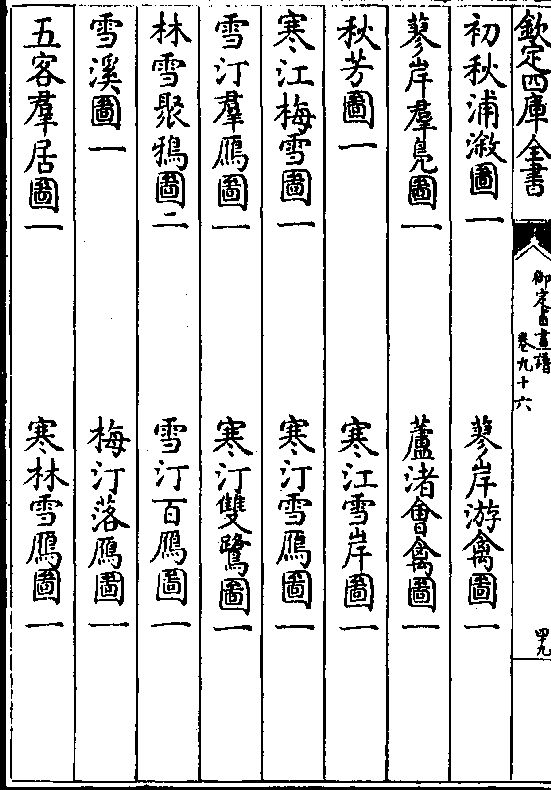 欽定四庫全書
御定書畫譜
卷九十六
四九
初秋浦漵圖一　蓼岸游禽圖一
蓼岸羣鳧圖一　蘆渚會禽圖一
秋芳圖一　寒江雪岸圖一
寒江梅雪圖一　寒汀雪鴈圖一
雪汀羣鴈圖一　寒汀雙鷺圖一
林雪聚鴉圖二　雪汀百鴈圖一
雪溪圖一　梅汀落鴈圖一
五客羣居圖一　寒林雪鴈圖一